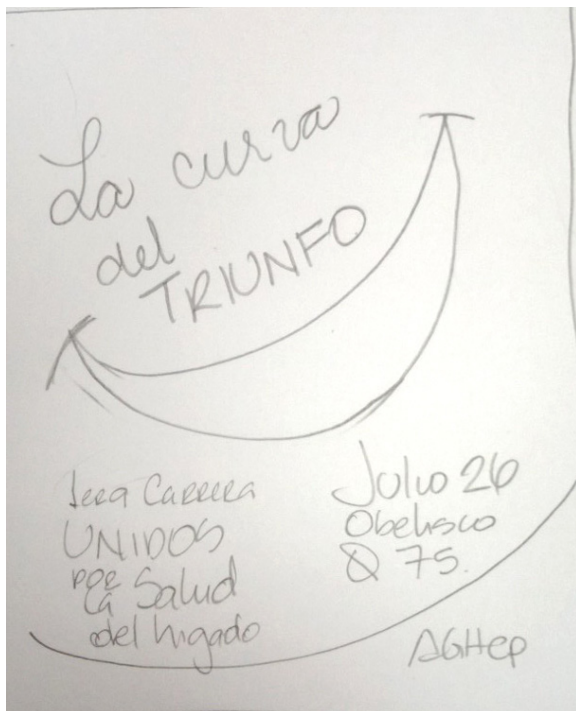 La curva
del
TRIUNFO
1era Carrera
UNIDOS
por
la Salud
del hígado
Julio 26
Obelisco
Q 75.
AGHep